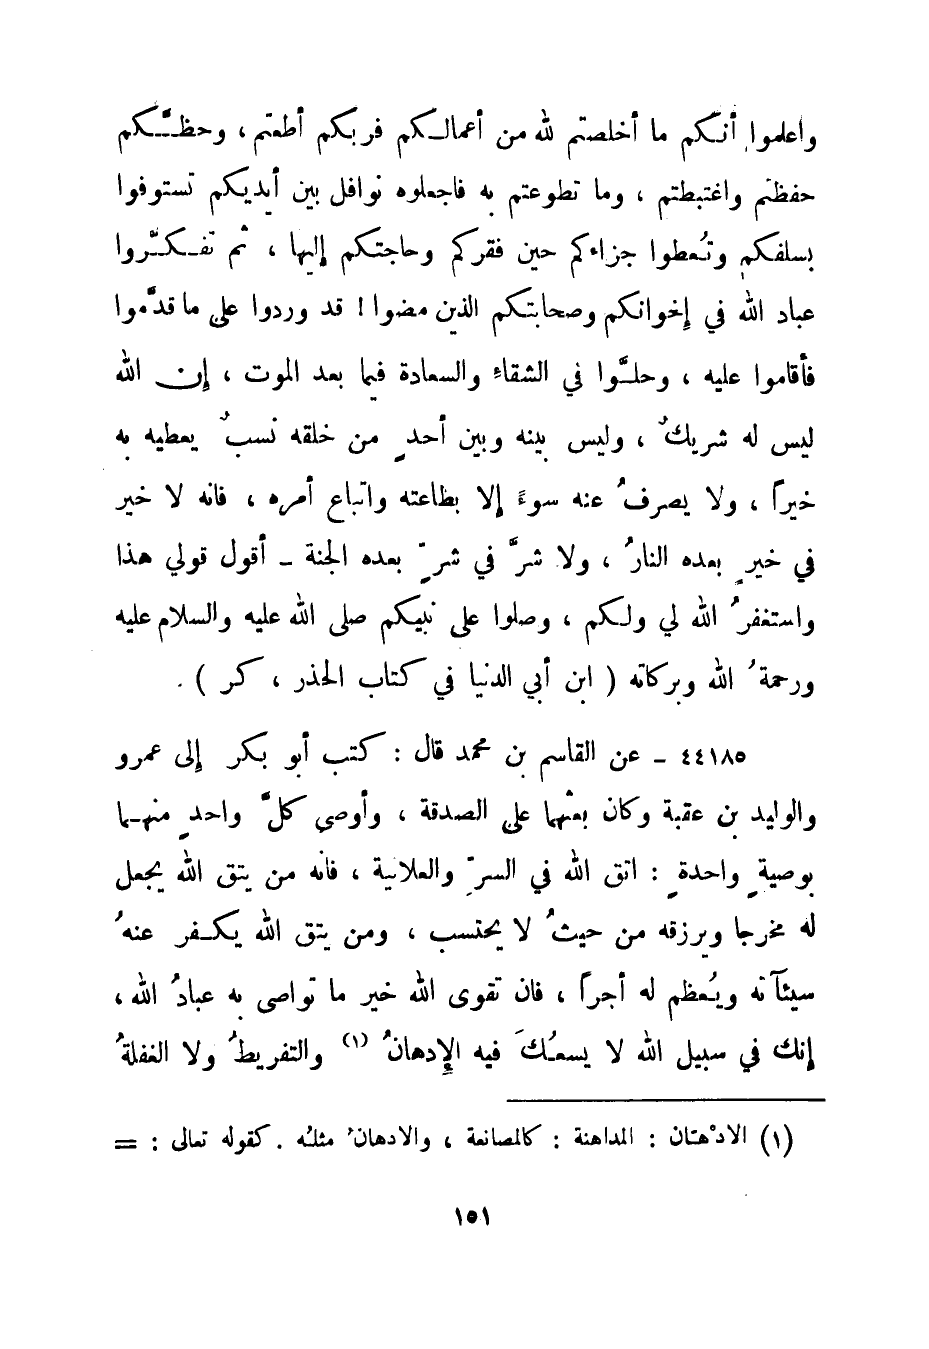 واعلموا أنكم ما أخلصتم لله من أعمالكم فربكم أطعتم ، وحظَّكم
حفظتم واغتبطتم ، وما تطوعتم به فاجعلوه نوافل بين أيديكم تستوفوا
بسلفكم وتُعطوا جزاءكم حين فقركم وحاجتكم إليها ، ثم تفكّروا
عباد الله في إخوانكم وصحابتكم الذين مضوا ! قد وردوا على ما قدَّموا
فأقاموا عليه ، وحلّوا في الشقاء والسعادة فيما بعد الموت ، إن الله
ليس له شريكٌ ، وليس بينه وبين أحدٍ من خلقه نسبٌ يعطيه به
خيراً ، ولا يصرفُ عنه سوءً إلا بطاعته واتباع أمره ، فانه لا خير
في خيرٍ بعده النارُ ، ولا شرَّ في شرٍّ بعده الجنة - أقول قولي هذا
واستغفرُ الله لي ولكم ، وصلوا على نبيكم صلى الله عليه والسلام عليه
ورحمةُ الله وبركاته ( ابن أبي الدنيا في كتاب الحذر ، كر ) .
٤٤١٨٥ - عن القاسم بن محمد قال : كتب أبو بكر إلى عمرو
والوليد بن عقبة وكان بعثهما على الصدقة ، وأوصى كلَّ واحدٍ منهما
بوصيةٍ واحدةٍ : اتق الله في السرِّ والعلانية ، فانه من يتق الله يجعل
له مخرجا ويرزقه من حيثُ لا يحتسب ، ومن يتق الله يكفر عنهُ
سيئآته ويُعظم له أجراً ، فان تقوى الله خير ما تواصى به عبادُ الله ،
إنك في سبيل الله لا يسعُكَ فيه الإِدهانُ (١) والتفريطُ ولا الغفلةُ
(١) الادْهتان : المداهنة : كالمصانعة ، والادهانُ مثله . كقوله تعالى : =
١٥١